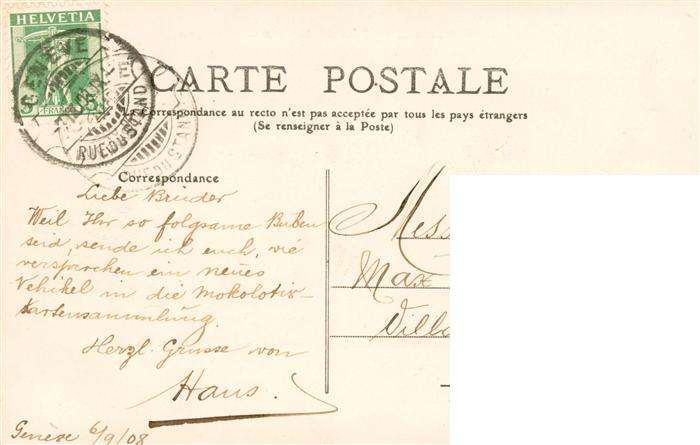 HELVETIA
GENÈVE
RUE DU STAND
CARTE POSTALE
La Correspondance au recto n'est pas acceptée par tous les pays étrangers
(Se renseigner à la Poste)
Correspondance
Liebe Brüder
Weil Ihr so folgsame Buben
seid, sende ich euch, wie
versprochen ein neues
Vehikel in die Mokolotiv-
kartensammlung.
Herzl. Grüsse von
Hans.
Genève 6/9/08
Mess
Max
Villa